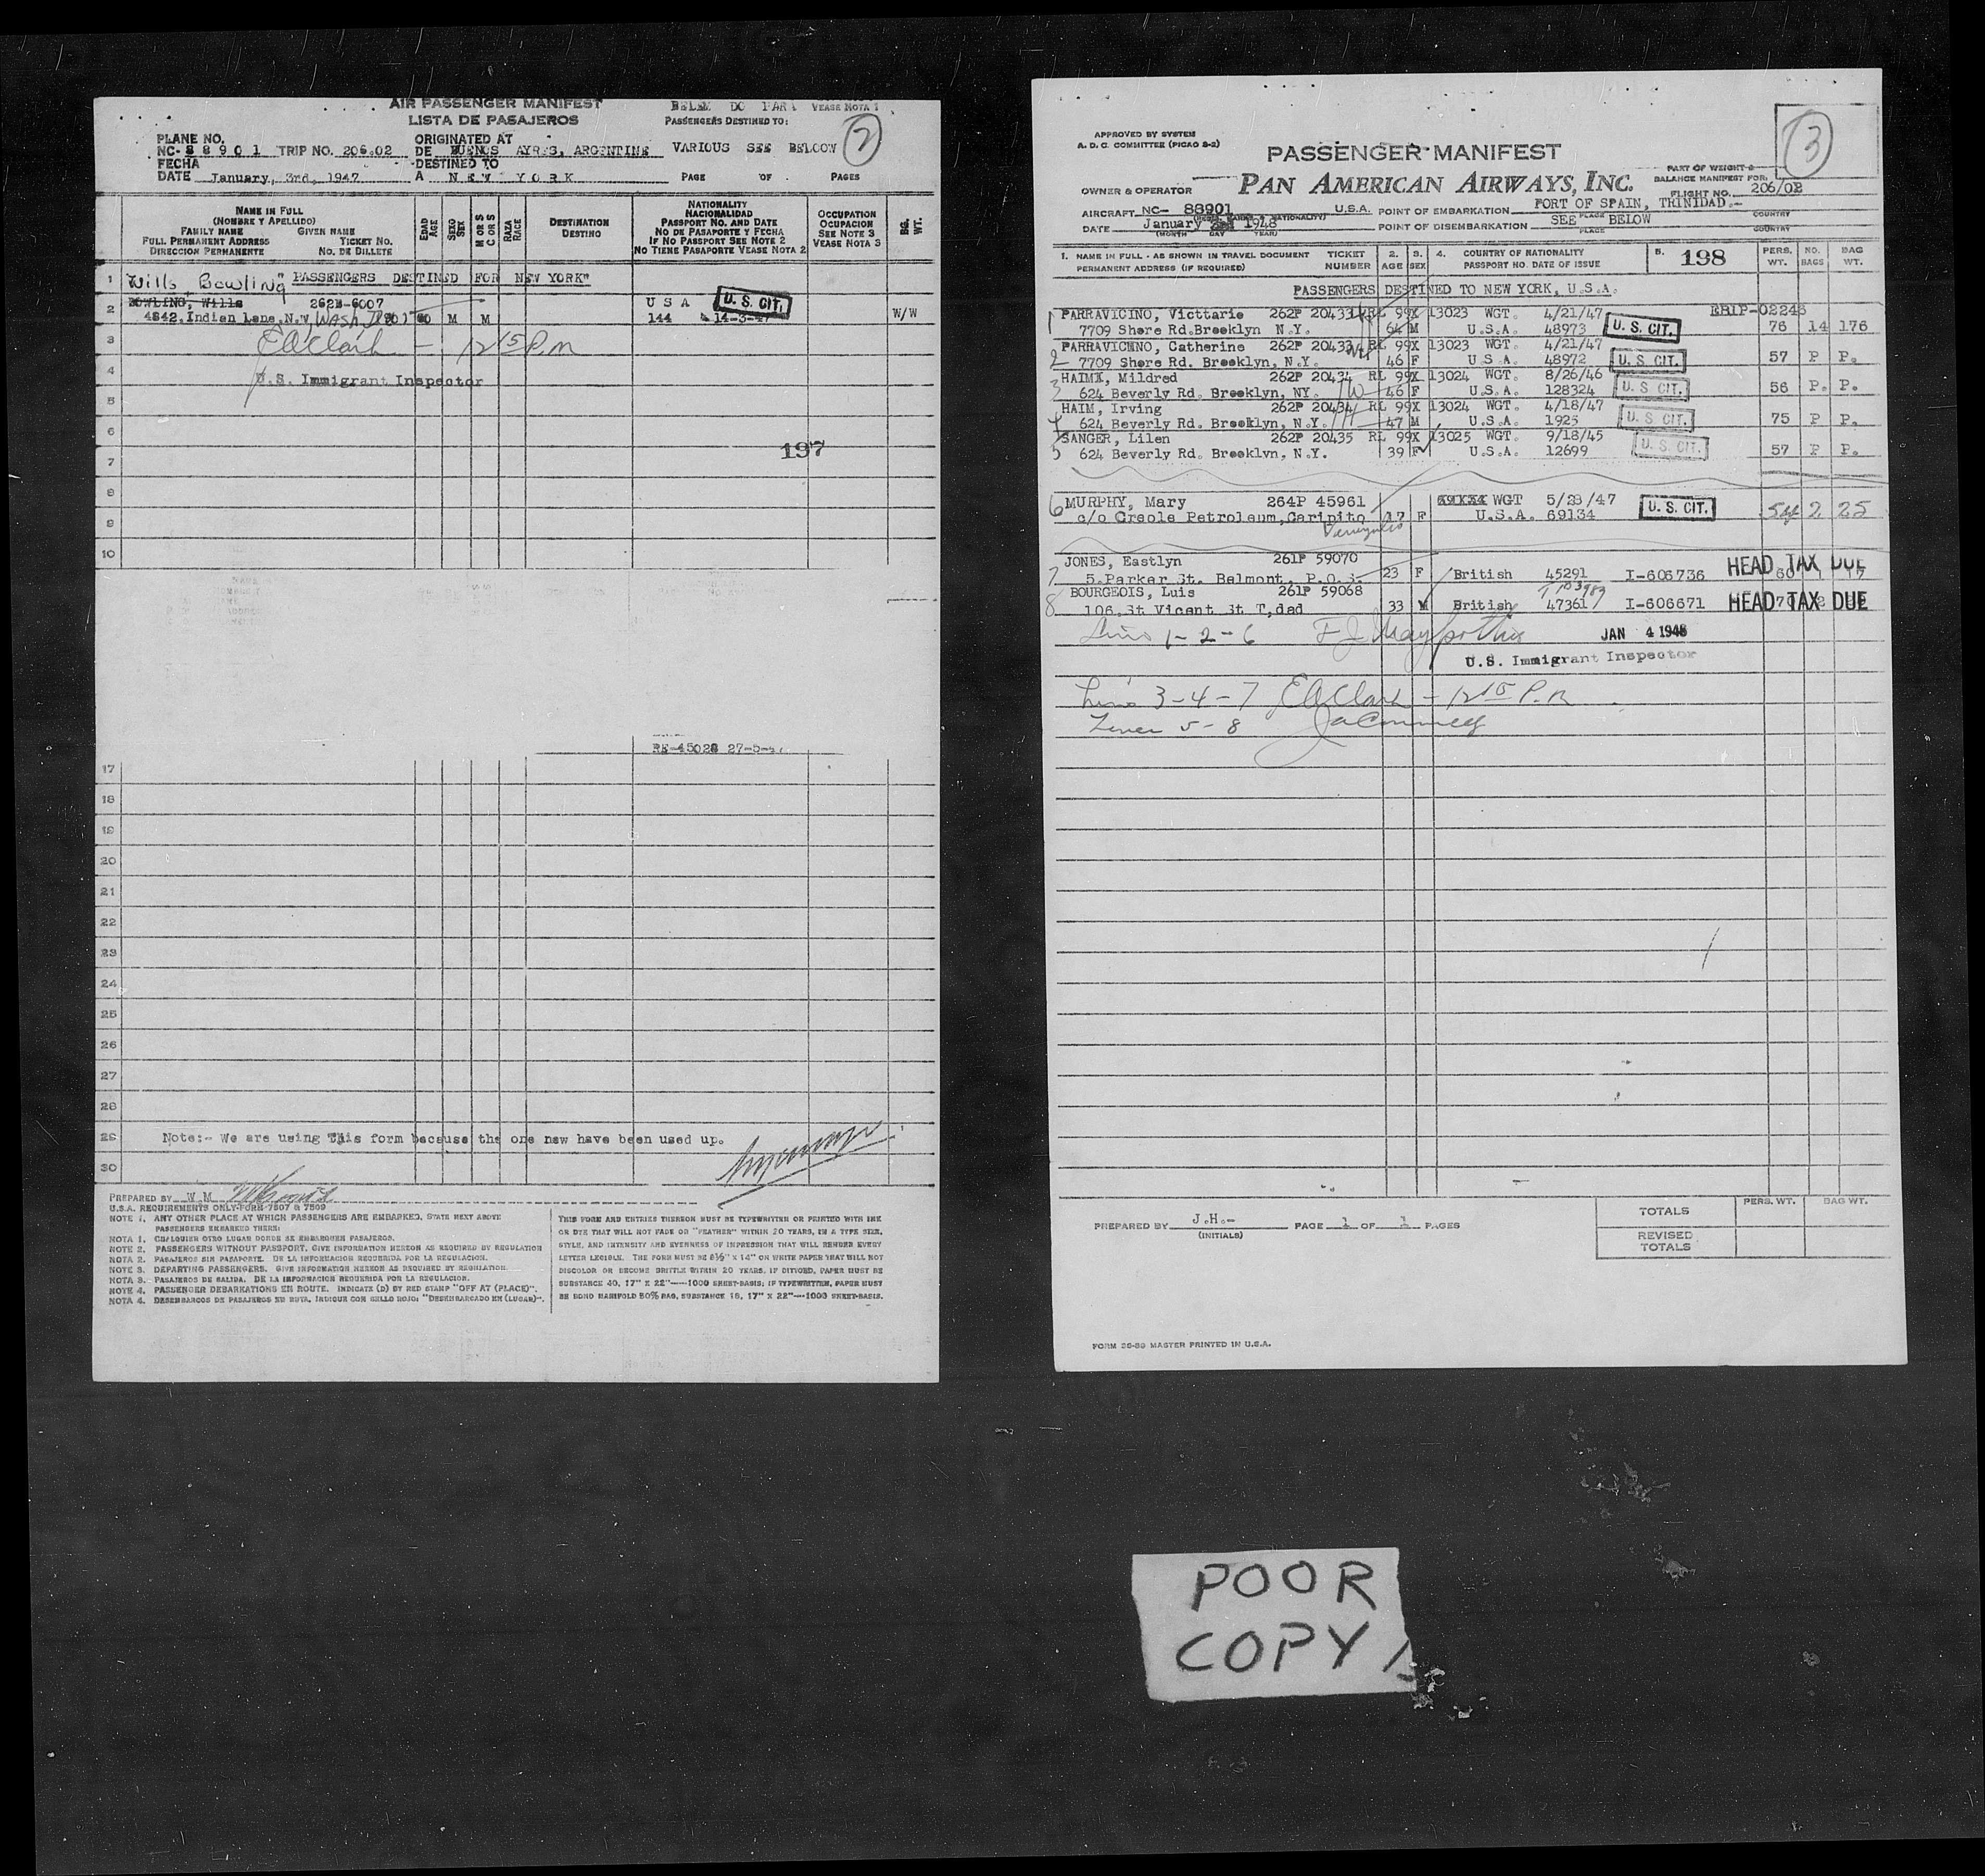 AIR PASSENGER MANIFEST
LISTA DE PASAJEROS
BELEM DO PARA VEASE NOTA 1
PASSENGERS DESTINED TO:
2
PLANE NO.
NC- 88901 TRIP NO. 206.02
ORIGINATED AT
DE BUENOS AYRES, ARGENTINE
VARIOUS SEE BELOOW
FECHA
DATE January, 3rd, 1947
DESTINED TO
A NEW YORK
PAGE OF PAGES
NAME IN FULL
(NOMBRE Y APELLIDO)
FAMILY NAME GIVEN NAME
FULL PERMANENT ADDRESS TICKET NO.
DIRECCION PERMANENTE NO. DE BILLETE
EDAD AGE
SEXO SEX
M OR S C OR S
RAZA RACE
DESTINATION
DESTINO
NATIONALITY
NACIONALIDAD
PASSPORT NO. AND DATE
NO DE PASAPORTE Y FECHA
IF NO PASSPORT SEE NOTE 2
NO TIENE PASAPORTE VEASE NOTA 2
OCCUPATION
OCUPACION
SEE NOTE 3
VEASE NOTA 3
BG. WT.
1 Wills Bowling "PASSENGERS DESTINED FOR NEW YORK"
2 BOWLING, Wills 262B-6007 USA U. S. CIT.
4842, Indian Lane, N.W, Wash, D.C. M M 144 14-3-47 W/W
3 EAClark - 12 15 P.m
4 U.S. Immigrant Inspector
5
6
197
7
8
9
10
RE-45028 27-5-47
17
18
19
20
21
22
23
24
25
26
27
28
29 Note:- We are using This form because the one new have been used up.
30
PREPARED BY W M
U.S.A. REQUIREMENTS ONLY-FORM 7507 & 7509
NOTE 1. ANY OTHER PLACE AT WHICH PASSENGERS ARE EMBARKED, STATE NEXT ABOVE
PASSENGERS EMBARKED THERE:
NOTA 1. CUALQUIER OTRO LUGAR DONDE SE EMBARQUEN PASAJEROS.
NOTE 2. PASSENGERS WITHOUT PASSPORT. GIVE INFORMATION HEREON AS REQUIRED BY REGULATION
NOTA 2. PASAJEROS SIN PASAPORTE. DE LA INFORMACION REQUERIDA POR LA REGULACION.
NOTE 3. DEPARTING PASSENGERS. GIVE INFORMATION HEREON AS REQUIRED BY REGULATION.
NOTA 3. PASAJEROS DE SALIDA. DE LA INFORMACION REQUERIDA POR LA REGULACION.
NOTE 4. PASSENGER DEBARKATIONS EN ROUTE. INDICATE (D) BY RED STAMP "OFF AT (PLACE)".
NOTA 4. DESEMBARCOS DE PASAJEROS EN RUTA. INDIQUE CON SELLO ROJO: "DESEMBARCADO EN (LUGAR)".
THIS FORM AND ENTRIES THEREON MUST BE TYPEWRITTEN OR PRINTED WITH INK
OR DYE THAT WILL NOT FADE OR "FEATHER" WITHIN 20 YEARS, IN A TYPE SIZE,
STYLE, AND INTENSITY AND EVENNESS OF IMPRESSION THAT WILL RENDER EVERY
LETTER LEGIBLE. THE FORM MUST BE 8½" X 14" ON WHITE PAPER THAT WILL NOT
DISCOLOR OR BECOME BRITTLE WITHIN 20 YEARS. IF DITTOED, PAPER MUST BE
SUBSTANCE 40, 17" X 22"----1000 SHEET-BASIS; IF TYPEWRITTEN, PAPER MUST
BE BOND MANIFOLD 50% RAG, SUBSTANCE 16, 17" X 22"----1000 SHEET-BASIS.
APPROVED BY SYSTEM
A. D. C. COMMITTEE (PICAO S-2)
3
PASSENGER MANIFEST
PAN AMERICAN AIRWAYS, INC.
OWNER & OPERATOR
PART OF WEIGHT &
BALANCE MANIFEST FOR:
FLIGHT NO. 206/02
AIRCRAFT NC- 88901 U.S.A. POINT OF EMBARKATION PORT OF SPAIN, TRINIDAD.-
DATE January 1948 POINT OF DISEMBARKATION SEE BELOW
(MONTH DAY YEAR) PLACE COUNTRY
1. NAME IN FULL - AS SHOWN IN TRAVEL DOCUMENT TICKET
PERMANENT ADDRESS (IF REQUIRED) NUMBER
2. AGE 3. SEX 4. COUNTRY OF NATIONALITY
PASSPORT NO. DATE OF ISSUE
5. 198
PERS. WT. NO. BAGS BAG WT.
PASSENGERS DESTINED TO NEW YORK, U.S.A.
1 PARRAVICINO, Victtarie 262P 20433 RL 99X 13023 WGT. 4/21/47 EBIP-02243
7709 Shore Rd.Brooklyn N.Y. 64 M U.S.A. 48973 U. S. CIT. 76 14 176
2 PARRAVICINO, Catherine 262P 20433 RL 99X 13023 WGT. 4/21/47
7709 Shore Rd. Brooklyn, N.Y. 46 F U.S.A. 48972 U. S. CIT. 57 P P.
3 HAIM, Mildred 262P 20434 RL 99X 13024 WGT. 8/26/46
624 Beverly Rd. Brooklyn, NY. 46 F U.S.A. 128324 U. S. CIT. 56 P. P.
4 HAIM, Irving 262P 20434 RL 99X 13024 WGT. 4/18/47
624 Beverly Rd. Brooklyn, N.Y. 47 M U.S.A. 1925 U. S. CIT. 75 P P.
5 SANGER, Lilen 262P 20435 RL 99X 13025 WGT. 9/18/45
624 Beverly Rd. Brooklyn, N.Y. 39 F U.S.A. 12699 U. S. CIT. 57 P P.
6 MURPHY, Mary 264P 45961 WGT 5/23/47
c/o Creole Petroleum,Caripito 17 F U.S.A. 69134 U. S. CIT. 54 2 25
JONES, Eastlyn 261P 59070
7 5.Parker St. Belmont, P.O.S. 23 F British 45291 I-606736 HEAD TAX DUE
BOURGEOIS, Luis 261P 59068
8 106.St Vicent St T,dad 33 M British 47361 I-606671 HEAD TAX DUE
Lines 1-2-6 JAN 4 1948
U.S. Immigrant Inspector
Lines 3-4-7 EAClark - 12 15 P.m
Lines 5-8
PREPARED BY J.H.- PAGE 1 OF 1 PAGES
(INITIALS)
PERS. WT. BAG WT.
TOTALS
REVISED
TOTALS
FORM 26-89 MASTER PRINTED IN U.S.A.
POOR
COPY